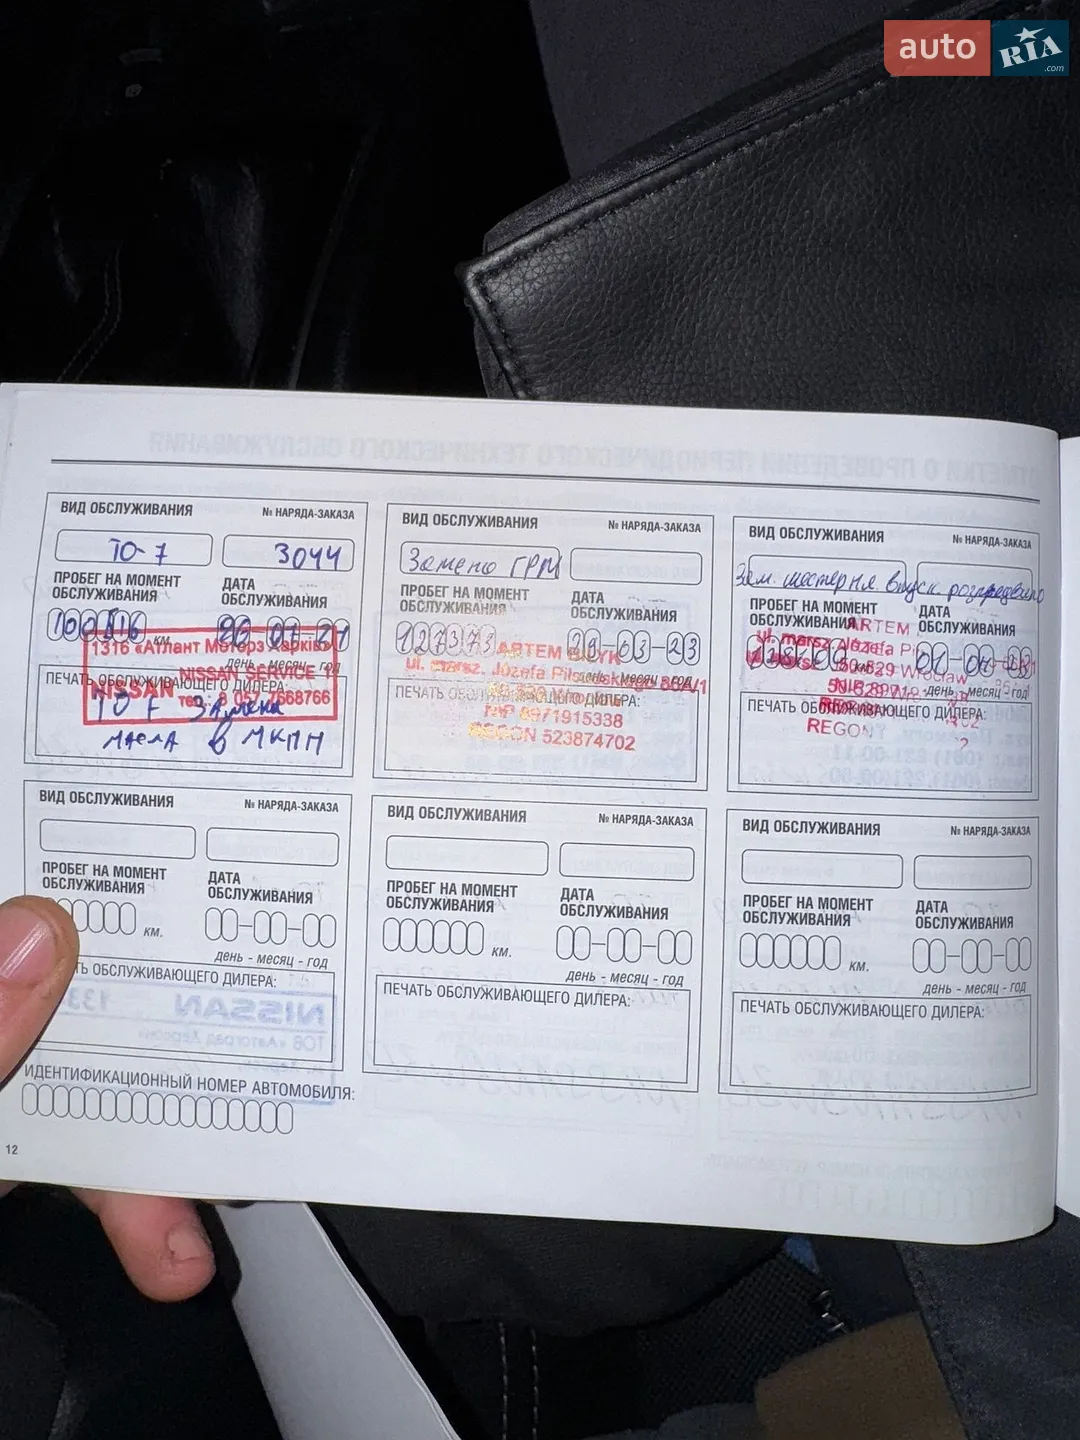 auto RIA.com
ВИД ОБСЛУЖИВАНИЯ № НАРЯДА-ЗАКАЗА
ТО-7 3044
ПРОБЕГ НА МОМЕНТ ОБСЛУЖИВАНИЯ ДАТА ОБСЛУЖИВАНИЯ
км. 07-21
день - месяц - год
1316 «Атлант Моторз Харків»
NISSAN SERVICE
NISSAN тел. 8 057 7668766
ПЕЧАТЬ ОБСЛУЖИВАЮЩЕГО ДИЛЕРА:
масла в МКПП
ВИД ОБСЛУЖИВАНИЯ № НАРЯДА-ЗАКАЗА
Замена ГРМ
ПРОБЕГ НА МОМЕНТ ОБСЛУЖИВАНИЯ ДАТА ОБСЛУЖИВАНИЯ
127373 03-23
день - месяц - год
ARTEM
ul. marsz. Józefa Piłsudskiego
ПЕЧАТЬ ОБСЛУЖИВАЮЩЕГО ДИЛЕРА:
NIP 8971915338
REGON 523874702
ВИД ОБСЛУЖИВАНИЯ № НАРЯДА-ЗАКАЗА
Зам. шестерня впуск. розпредвала
ПРОБЕГ НА МОМЕНТ ОБСЛУЖИВАНИЯ ДАТА ОБСЛУЖИВАНИЯ
ARTEM
ul. marsz. Józefa
Wrocław
день - месяц - год
ПЕЧАТЬ ОБСЛУЖИВАЮЩЕГО ДИЛЕРА:
REGON
ВИД ОБСЛУЖИВАНИЯ № НАРЯДА-ЗАКАЗА
ПРОБЕГ НА МОМЕНТ ОБСЛУЖИВАНИЯ ДАТА ОБСЛУЖИВАНИЯ
км.
день - месяц - год
ОБСЛУЖИВАЮЩЕГО ДИЛЕРА:
ВИД ОБСЛУЖИВАНИЯ № НАРЯДА-ЗАКАЗА
ПРОБЕГ НА МОМЕНТ ОБСЛУЖИВАНИЯ ДАТА ОБСЛУЖИВАНИЯ
км.
день - месяц - год
ПЕЧАТЬ ОБСЛУЖИВАЮЩЕГО ДИЛЕРА:
ВИД ОБСЛУЖИВАНИЯ № НАРЯДА-ЗАКАЗА
ПРОБЕГ НА МОМЕНТ ОБСЛУЖИВАНИЯ ДАТА ОБСЛУЖИВАНИЯ
км.
день - месяц - год
ПЕЧАТЬ ОБСЛУЖИВАЮЩЕГО ДИЛЕРА:
ИДЕНТИФИКАЦИОННЫЙ НОМЕР АВТОМОБИЛЯ:
12